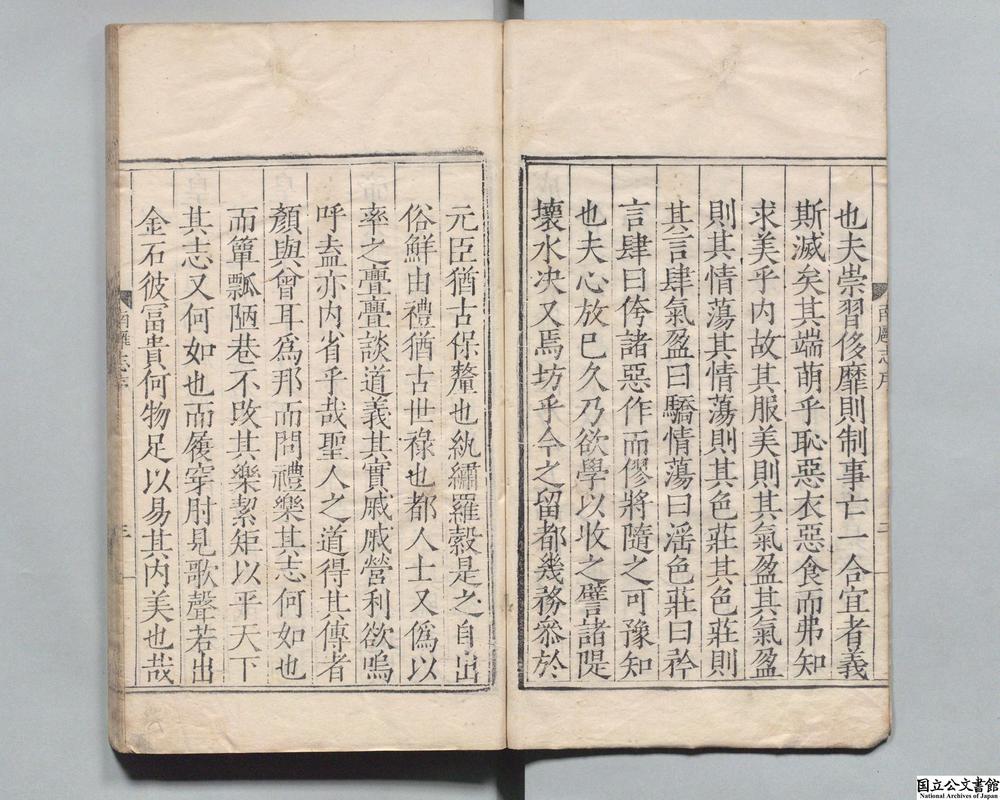 也夫崇習侈靡則制事亡一合宜者義
斯滅矣其端萌乎恥惡衣惡食而弗知
求美乎内故其服美則其氣盈其氣盈
則其情蕩其情蕩則其色莊其色莊則
其言肆氣盈曰驕情蕩曰滛色莊曰矜
言肆曰侉諸惡作而僇將隨之可豫知
也夫心放已久乃欲學以收之譬諸隄
壞水决又焉坊乎今之留都幾務叅於
南廱志序
二
元臣猶古保釐也紈繡羅縠是之自出
俗鮮由禮猶古世祿也都人士又僞以
率之亹亹談道義其實戚戚營利欲嗚
呼盍亦内省乎哉聖人之道得其傳者
顏與曾耳爲邦而問禮樂其志何如也
而簞瓢陋巷不改其樂絜矩以平天下
其志又何如也而履穿肘見歌聲若出
金石彼冨貴何物足以易其内美也哉
南廱志序
三
国立公文書館
National Archives of Japan